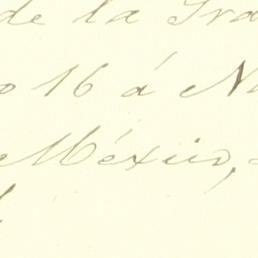 de la Gra
o 16 á N
México,